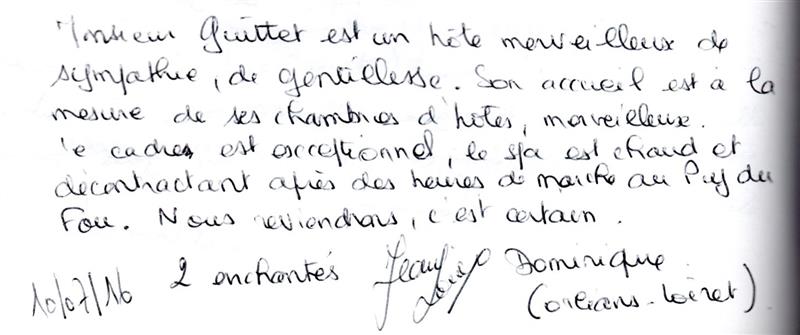 Monsieur Guittet est un hôte merveilleux de
sympathie, de gentillesse. Son accueil est à la
mesure de ses chambres d'hôtes, merveilleux.
Le cadre est exceptionnel, le spa est chaud et
décontractant après des heures de marche au Puy du
Fou. Nous reviendrons, c'est certain.
10/07/16 2 enchantés Jean Dominique
(Orléans-Loiret)